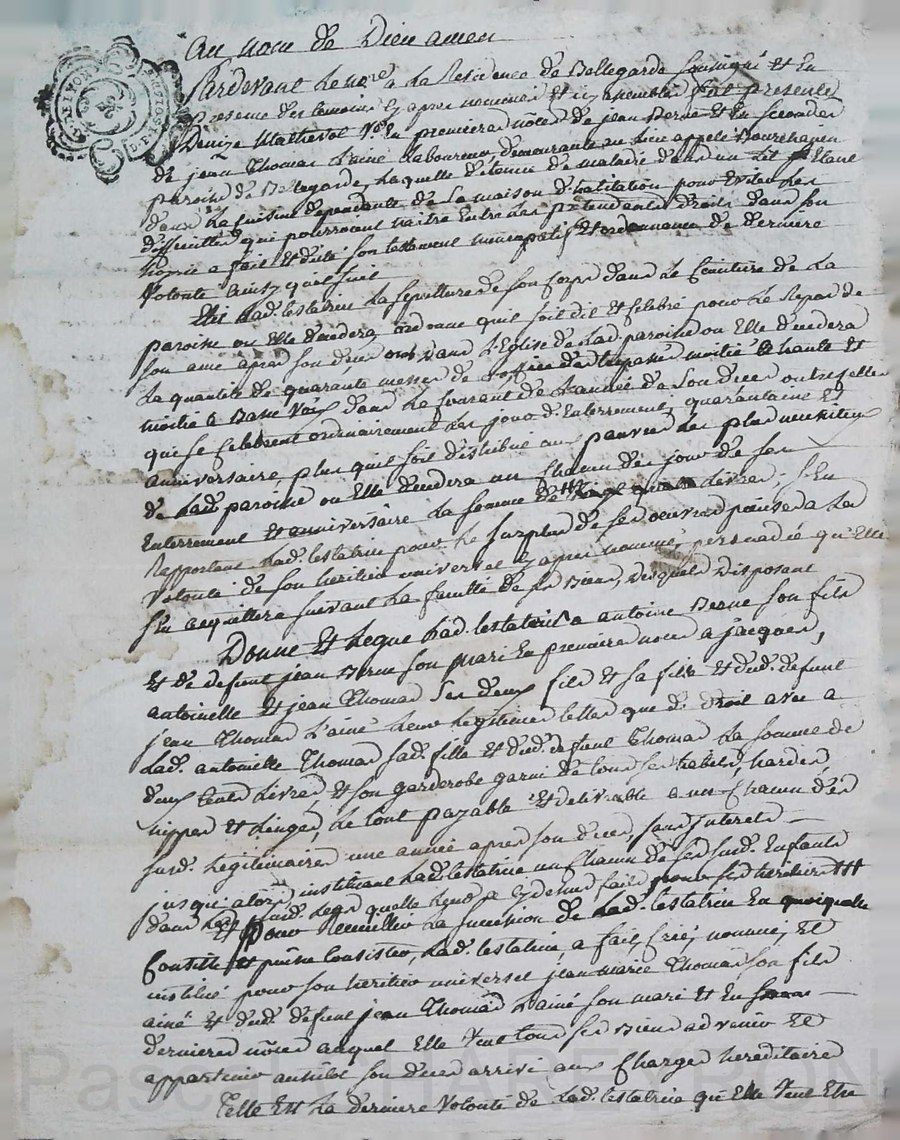 Au nom de Dieu amen
Pardevant le no.re a la Residence de Bellegarde soussigné et En
presence des temoins Cy apres nommés et fut presente
Denize Matheval V.e En premieres noces de jean Berne et En secondes
de jean Thomas l'ainé Laboureur demeurante au lieu appelé
paroisse de Bellegarde, laquelle detenue de maladie dans un lit Etant
dans la Cuisine dependante de sa maison d'habitation pour Eviter les
difficultés qui pourroient naitre Entre les pretendants droits dans son
hoirie a fait et dicté son testament nuncupatif et ordonnance de derniere
Volonté ainsy quil suit
Elit lad. testatrice la sepulture de son corps dans le Cimitiere de la
paroisse ou Elle decedera ordonne quil soit dit et celebré pour le repos de
son ame apres son deces dans l'Eglise de lad. paroisse ou Elle decedera
la quantité de quarante messes de l'office des trepassés moitié a haute et
moitié a Basse Voix dans le Courant de l'année de son deces outre celles
qui se celebrent ordinairement les jours d'Enterrement, quarantaine et
anniversaire, plus quil soit distribué aux pauvres les plus necessiteux
de lad. paroisse ou Elle decedera un Chacun des jours de ses
Enterrement et anniversaire la somme de livres, s'En
Rapportant lad. testatrice pour le surplus de ses oeuvres pieuses a la
Volonté de son heritier universel Cy apres nommé, persuadée qu'Elle
s'En acquittera suivant la faculté de ses Biens, desquels disposant
Donne et Legue lad. testatrice a antoine Berne son fils
et de defunt jean Berne son mari En premieres noces a jacques,
antoinette et jean Thomas ses deux fils et sa fille et dud. defunt
jean Thomas l'ainé leurs legitimes telles que de Droit avec a
lad. antoinette Thomas sad. fille et dud. defunt Thomas la somme de
deux Cents livres et son garderobe garni de tous ses habits, hardes,
nippes et linges, le tout payable et delivrable a un Chacun des
susd. legitimaires une année apres son deces, sans Interets
jusqu'alors, instituant lad. testatrice un Chacun de ses susd. Enfants
dans les susd. legs quelle leurs a Cy dessus faits pour ses heritiers
Et pour Recueillir la succession de lad. testatrice En quoi quelle
Consiste et puisse Consister, lad. testatrice a fait, Créé, nommé, et
institué pour son heritier universel jean marie Thomas son fils
ainé et dud. defunt jean Thomas l'ainé son mari et En
dernieres noces auquel Elle Veut tous ses Biens advenir et
appartenir aussitot son deces arrivé aux Charges hereditaires
Telle Est la derniere Volonté de lad. testatrice qu'Elle Veut Etre
Pascal CHAREYRON